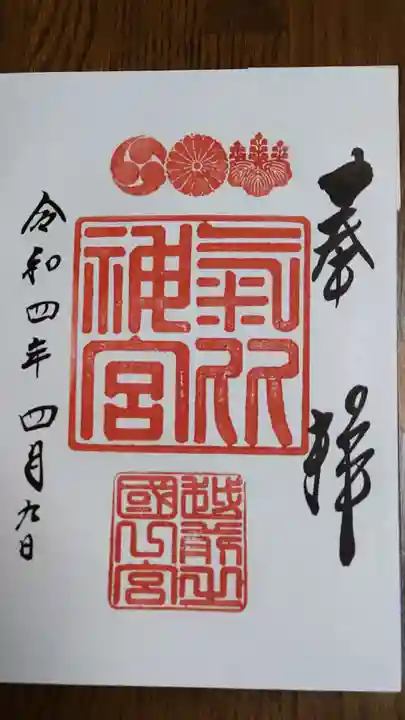 奉拝
氣比
神宮
越前之
國一宮
令和四年四月九日